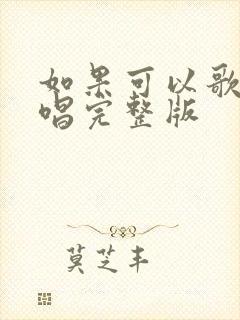 如果可以歌
唱完整版
莫芝丰